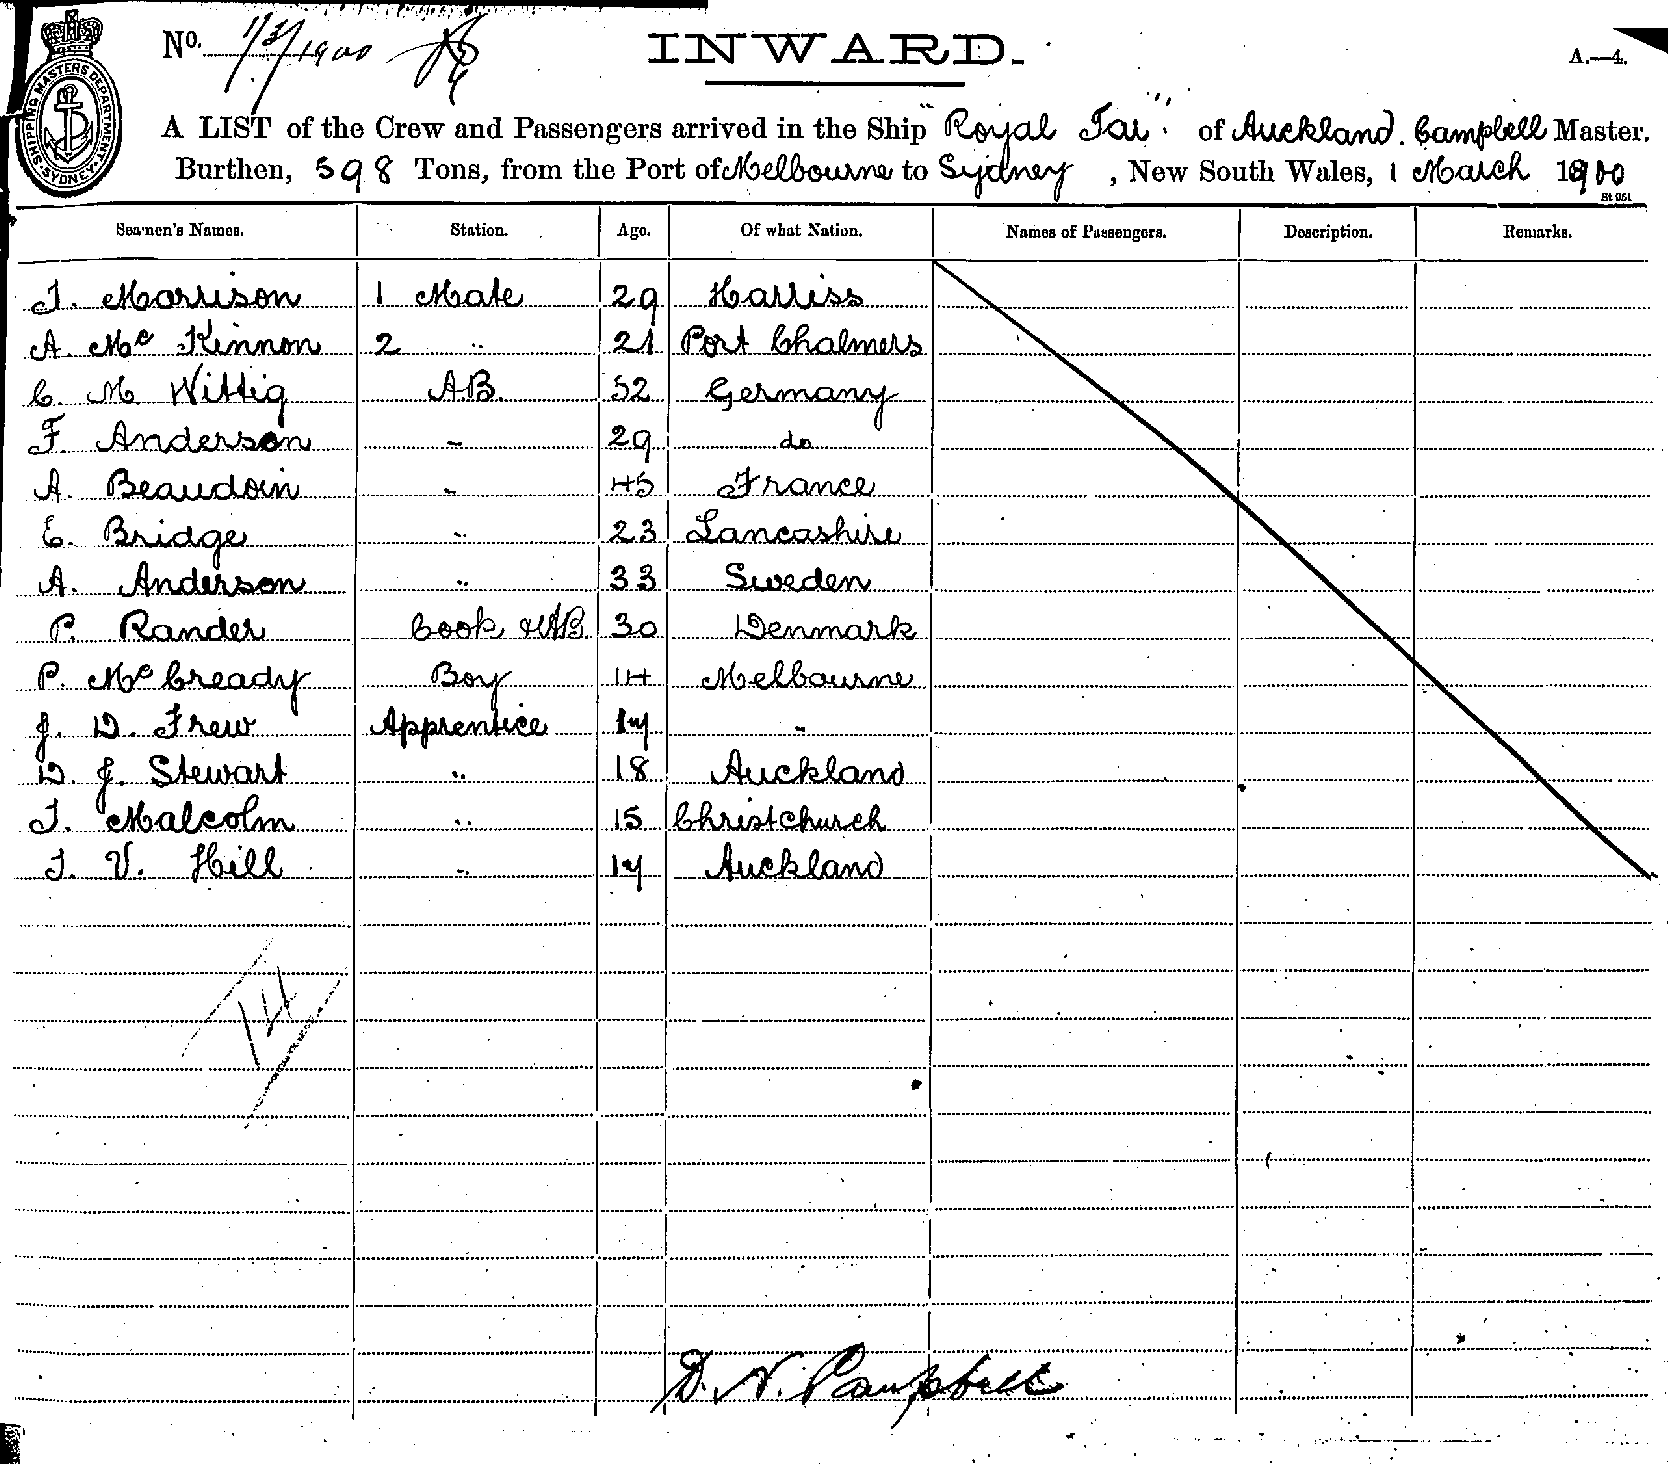 No. 1/3/1900
INWARD.
A.—4.
SHIPPING MASTERS DEPARTMENT SYDNEY
A LIST of the Crew and Passengers arrived in the Ship "Royal Tar" of Auckland. Campbell Master.
Burthen, 598 Tons, from the Port of Melbourne to Sydney, New South Wales, 1 March 1900
Seamen's Names. Station. Age. Of what Nation. Names of Passengers. Description. Remarks.
J. Morrison 1 Mate 29 Harriss
A. Mc Kinnon 2 " 21 Port Chalmers
C. M Wittig A.B. 52 Germany
F. Anderson " 29 do
A. Beaudoin " 45 France
E. Bridge " 23 Lancashire
A. Anderson " 33 Sweden
P. Rander Cook & AB 30 Denmark
P. McCready Boy 14 Melbourne
J. D. Frew Apprentice 17 "
D. J. Stewart " 18 Auckland
T. Malcolm " 15 Christchurch
T. V. Hill " 17 Auckland
14
D. N. Campbell